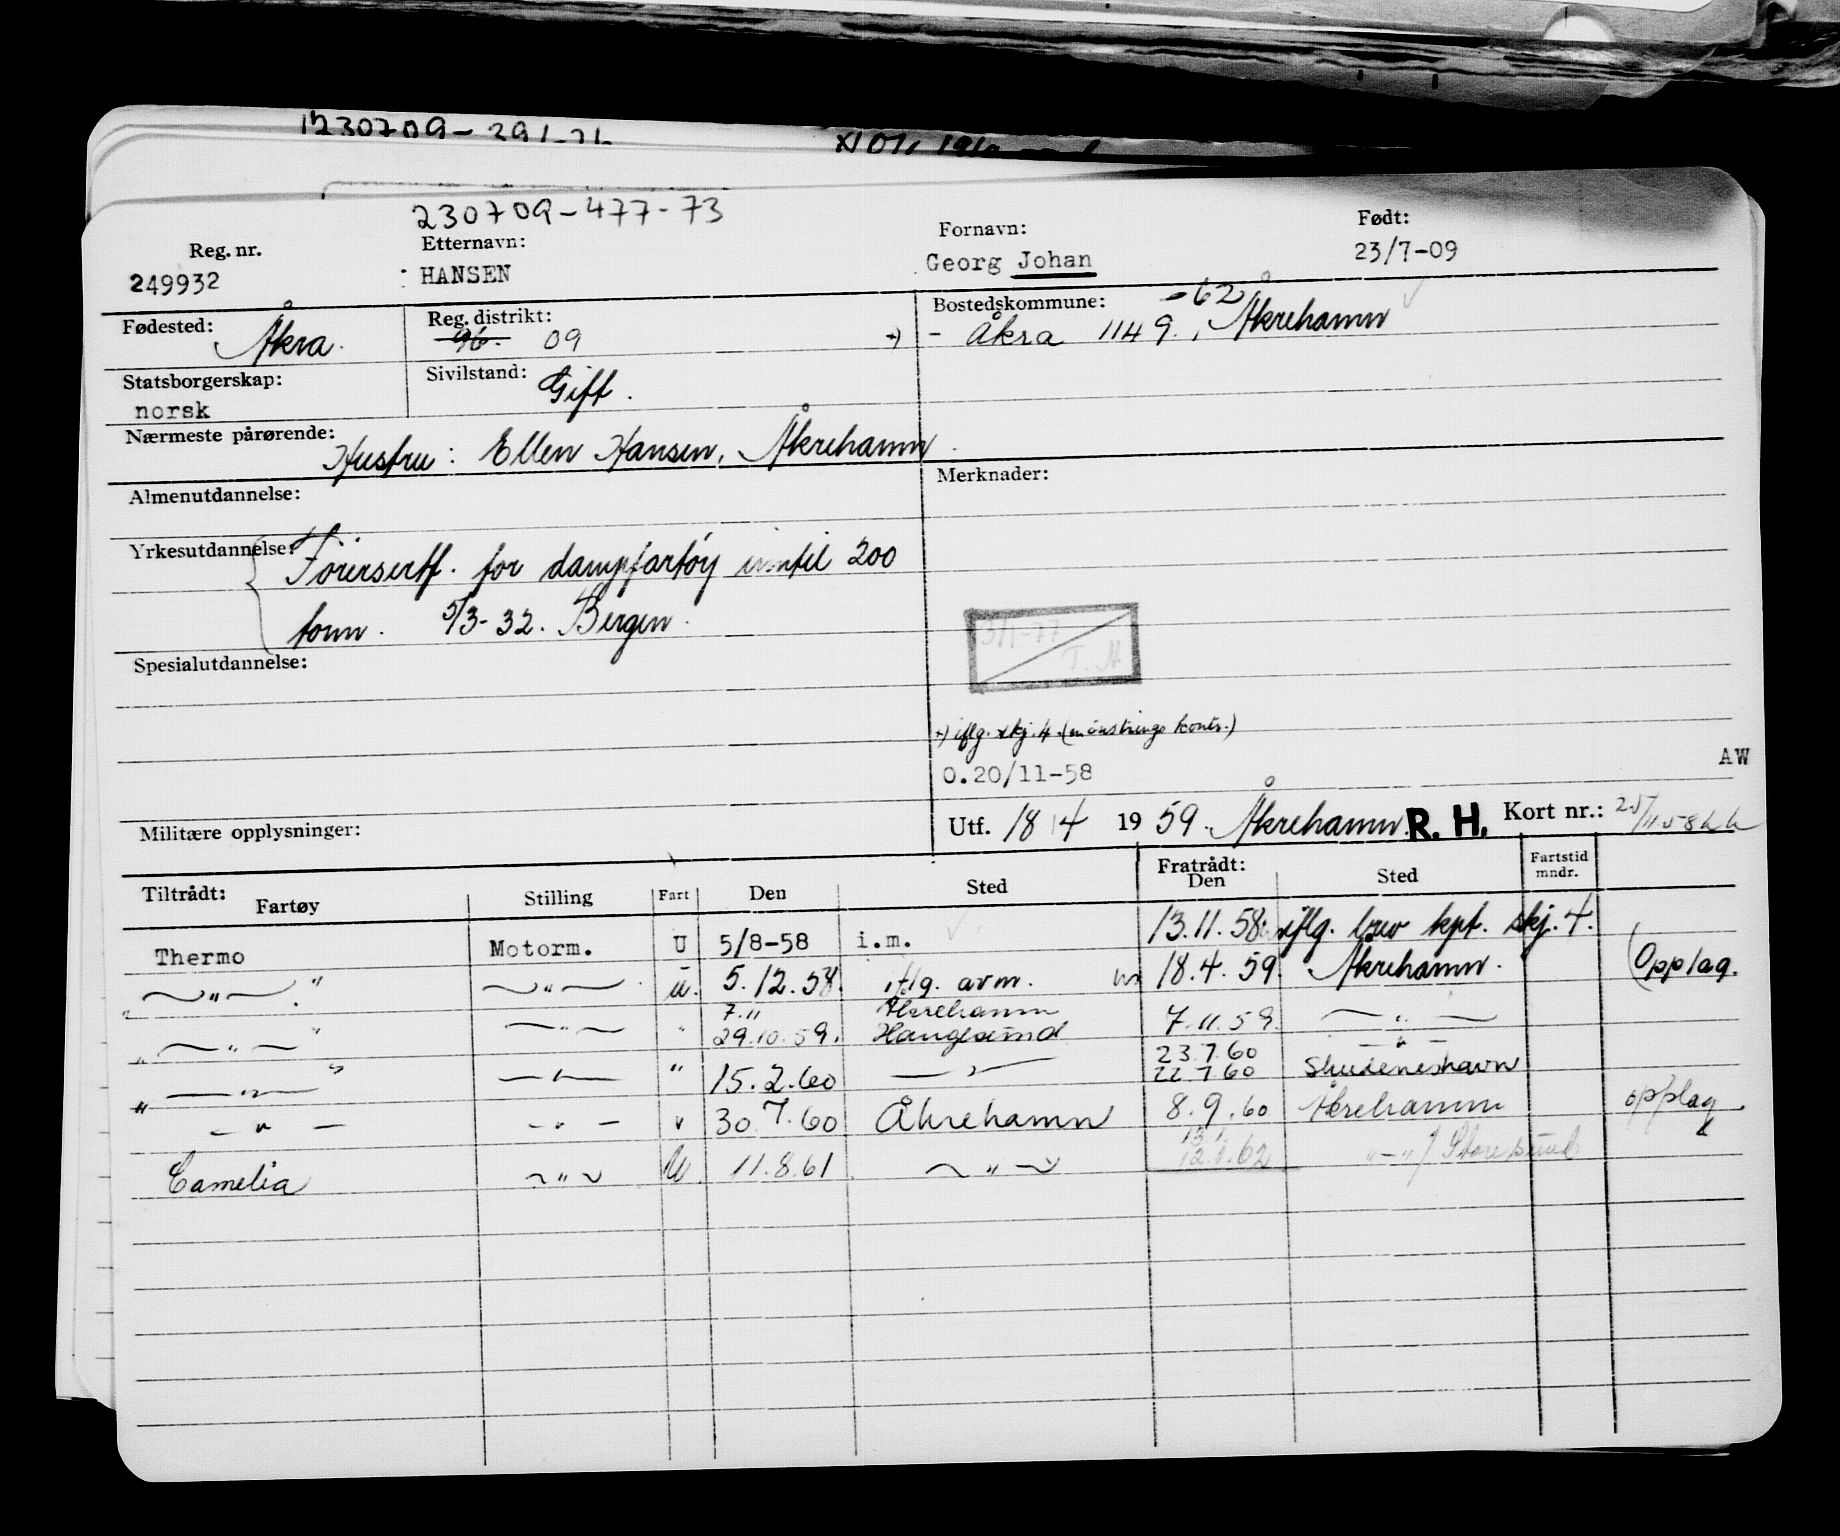 230709-477-73
Reg. nr. Etternavn: Fornavn: Født:
249932 HANSEN Georg Johan 23/7-09
Fødested: Åkra. Reg. distrikt: 96. 09 Bostedskommune: -62
+) - Åkra 1149., Åkrehamn
Statsborgerskap: norsk Sivilstand: Gift.
Nærmeste pårørende: Hustru: Ellen Hansen, Åkrehamn.
Almenutdannelse: Merknader:
Yrkesutdannelse: Førersertf. for dampfartøy inntil 200
tonn. 5/3-32. Bergen.
3/1-77
T. N
Spesialutdannelse:
+) iflg. skj. 4. (mønstrings kontr.)
O.20/11-58 AW
Militære opplysninger: Utf. 18 4 1959. Åkrehamn. R. H. Kort nr.:
Tiltrådt: Fratrådt: Fartstid mndr.
Fartøy Stilling Fart Den Sted Den Sted
Thermo Motorm. U 5/8-58 i.m. 13.11.58 iflg. brev kpt. skj. 4.
—"— " —"— u. 5.12.58. iflg. avm. 18.4.59. Åkrehamn. (Opplag.
7.11 Åkrehamn
" —"— " —"— " 29.10.59. Haugesund 7.11.59. —"—
23.7.60 —"—
" —"— " —"— " 15.2.60 —"— 22.7.60 Skudeneshavn
" —"— —"— " 30.7.60 Åkrehamn 8.9.60 Åkrehamn opplag
13.1.
Camelia —"— U. 11.8.61. —"— 12.1.62 "—" / Storesund